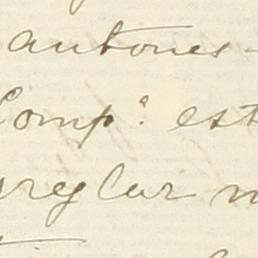 autones-
Comp.ª est
areglar m